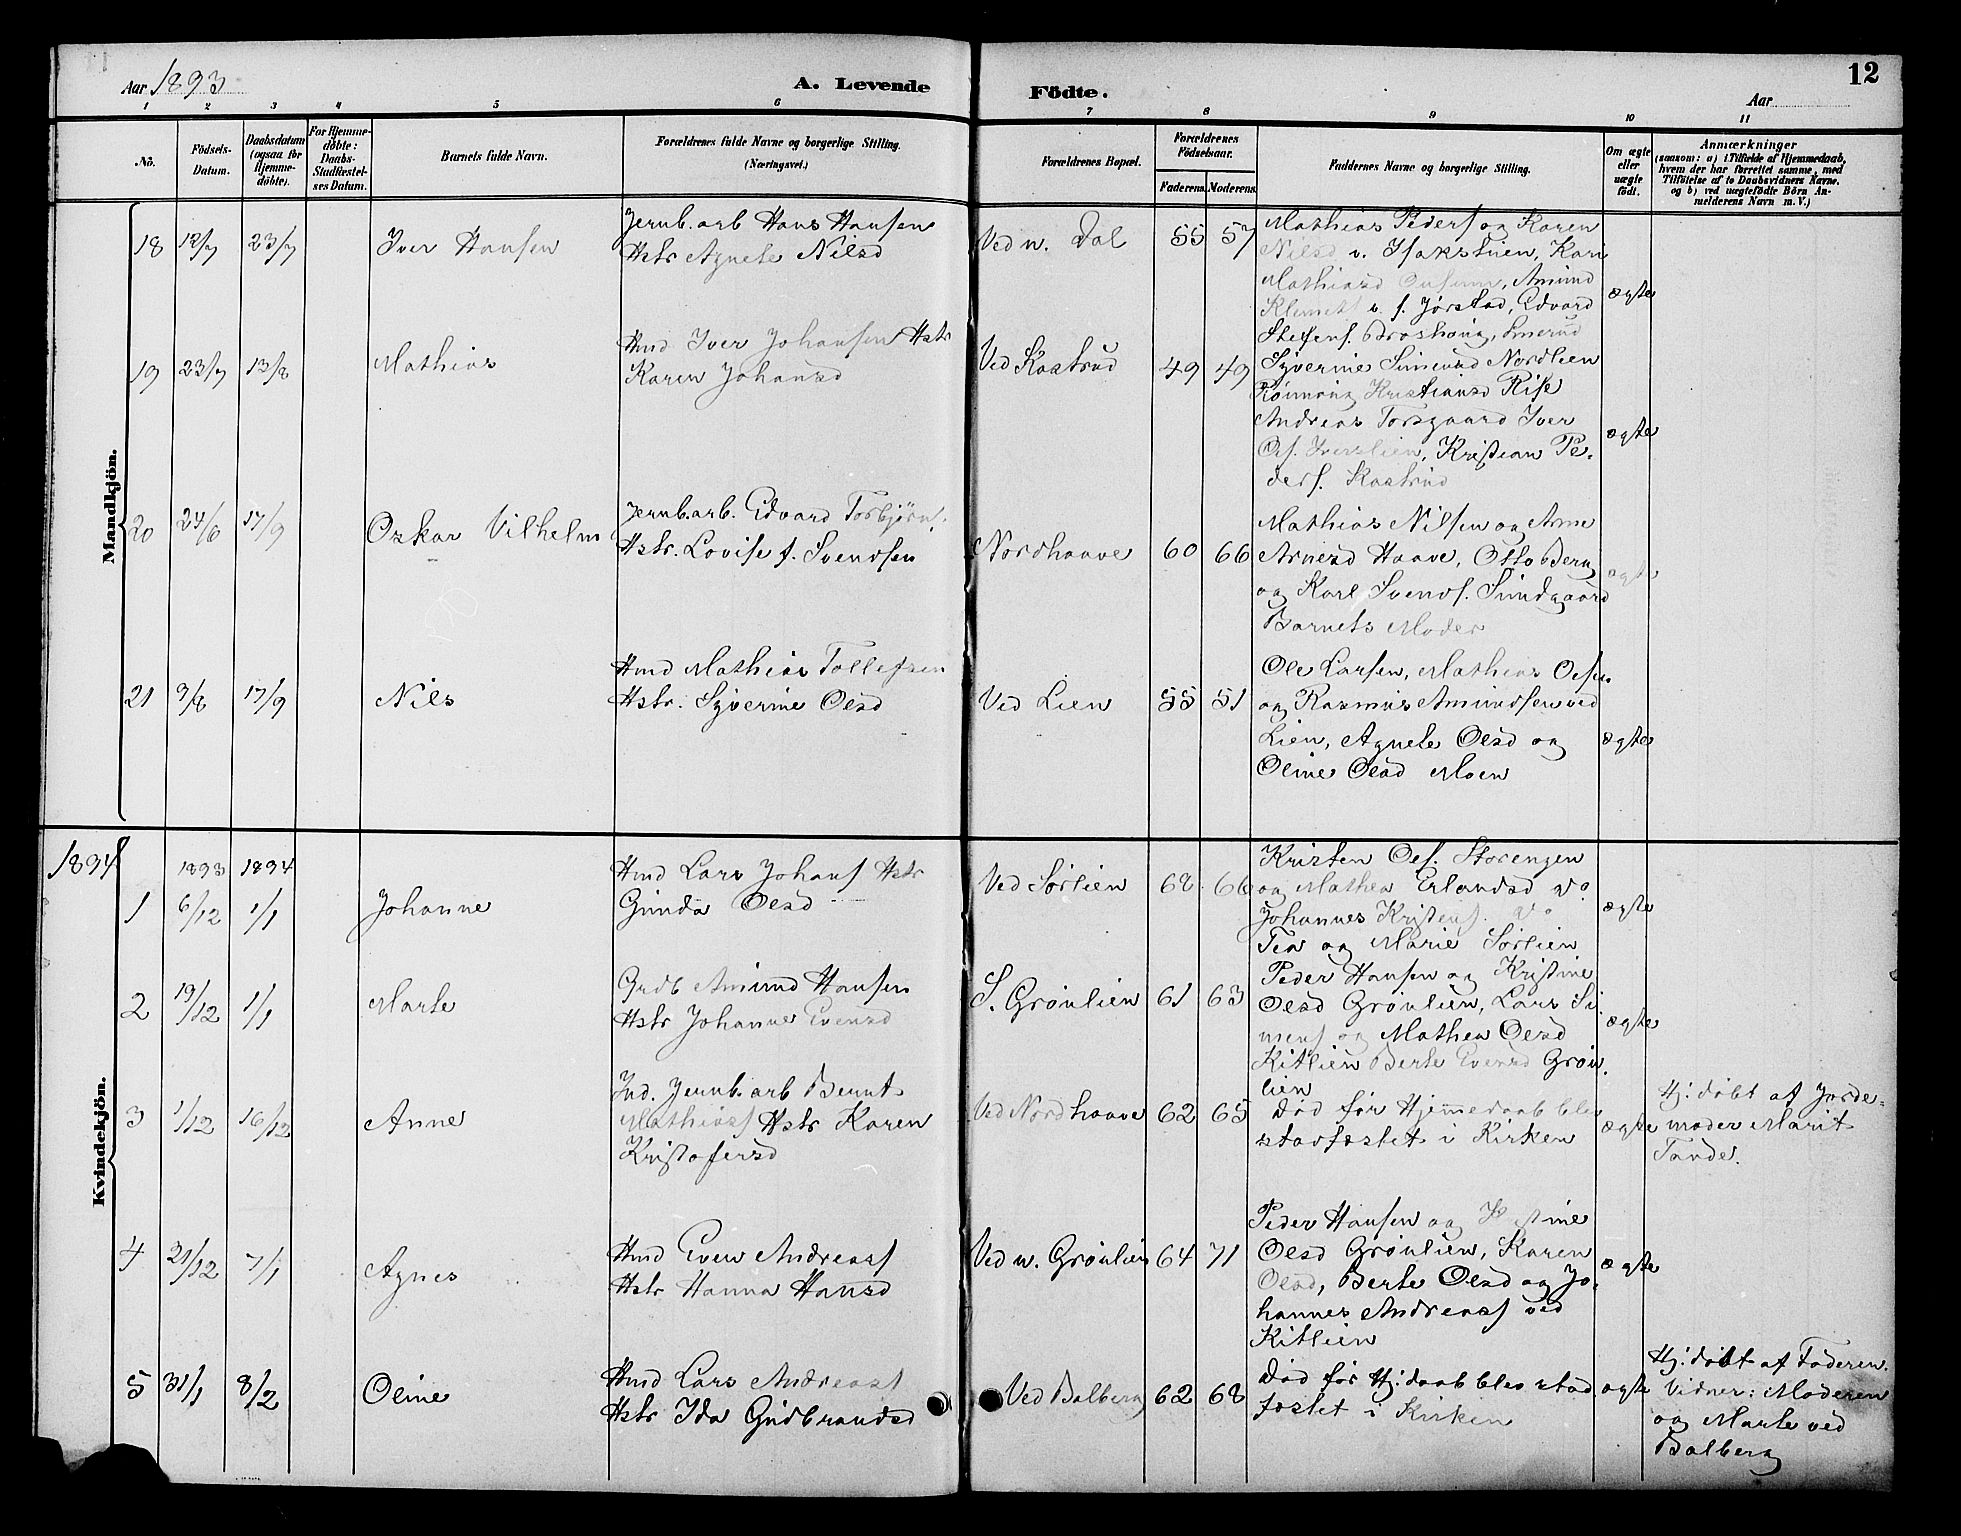 Aar 1893
A. Levende
Födte.
Aar
12
1 2 3 4 5 6 7 8 9 10 11
No.
Födsels-
Datum.
Daabsdatum
(ogsaa for
Hjemme-
döbte).
For Hjemme-
döbte:
Daabs-
Stadfæstel-
ses Datum.
Barnets fulde Navn.
Forældrenes fulde Navne og borgerlige Stilling.
(Næringsvei.)
Forældrenes Bopæl.
Forældrenes
Födselsaar.
Faderens. Moderens.
Faddernes Navne og borgerlige Stilling.
Om ægte
eller
uægte
födt.
Anmærkninger
(saasom: a) i Tilfælde af Hjemmedaab,
hvem der har forrettet samme, med
Tilföielse af to Daabsvidners Navne,
og b) ved uægtefödte Börn An-
melderens Navn m. V.)
Mandkjön.
18 12/7 23/7 Iver Hansen
Jernb.arb Hans Hansen
Hstr Agnete Nilsd
Ved n. Dal 55 57
Mathias Peders og Karen
Nilsd v. Isakstuen, Kari
Mathiasd, Amund
Klemet v. s. Jørstad, Edvard
ægte
19 23/7 13/8 Mathias
Hmd Iver Johansen Hstr
Karen Johansd
Ved Kastrud 49 49
Steffens. Broshaug,
Syverine Simenst Nordlien
Kristiansd Rise
Andreas Torsgaard Iver
Ols. Iverslien, Kristian Pe-
ders. Kastrud
ægte
20 24/6 17/9 Oskar Vilhelm
Jernb.arb. Edvard Torbjørns.
Hstr. Lovise f. Svendsen
Nordhaave 60 66
Mathias Nilsen og Anne
Arnesd Haave, Otto Berg
og Karl Svends. Sundgaard
Barnets Moder
ægte
21 9/8 17/9 Nils
Hmd Mathias Tollefsen
Hstr. Syverine Olsd
Ved Lien 55 51
Ole Larsen, Mathias Olsen
og Rasmus Amundsen ved
Lien, Agnete Olsd og
Oline Olsd Moen
ægte
Kvindekjön.
1894
1893 1894
1 6/12 1/1 Johanne
Hmd Lars Johans Hstr
Gunda Olsd
Ved Sørlien 68 66
Kristen Ols. Storengen
og Mathea Erlandsd do
Johannes Kristens. do
Tea og Marie Sørlien
ægte
2 19/12 1/1 Marte
Grdb Amund Hansen
Hstr Johanne Evensd
S. Grønlien 61 63
Peder Hansen og Kristine
Olsd Grønlien, Lars Si-
mens og Mathea Olsd
Kitlien Berte Evensd Grøn-
lien
ægte
3 1/12 16/12 Anne
Ind. Jernb.arb Bernt
Mathiass Hstr Karen
Kristofersd
Ved Nordhaave 62 65
Død før Hjemmedaab blev
stadfæstet i Kirken
ægte
Hj: døbt af Jorde-
moder Marit
Tande.
4 21/12 7/1 Agnes
Hmd Even Andreass
Hstr Hanna Hansd
Ved n. Grønlien 64 71
Peder Hansen og Kristine
Olsd Grønlien, Karen
Olsd, Berte Olsd og Jo-
hannes Andreass ved
Kitlien
ægte
5 31/1 8/2 Oline
Hmd Lars Andreass
Hstr Ida Gudbrandsd
Ved Balberg 62 68
Død før Hj: daab blev stad
fæstet i Kirken
ægte
Hj: døbt af Faderen.
Vidner: Moderen
og Marte ved
Balberg